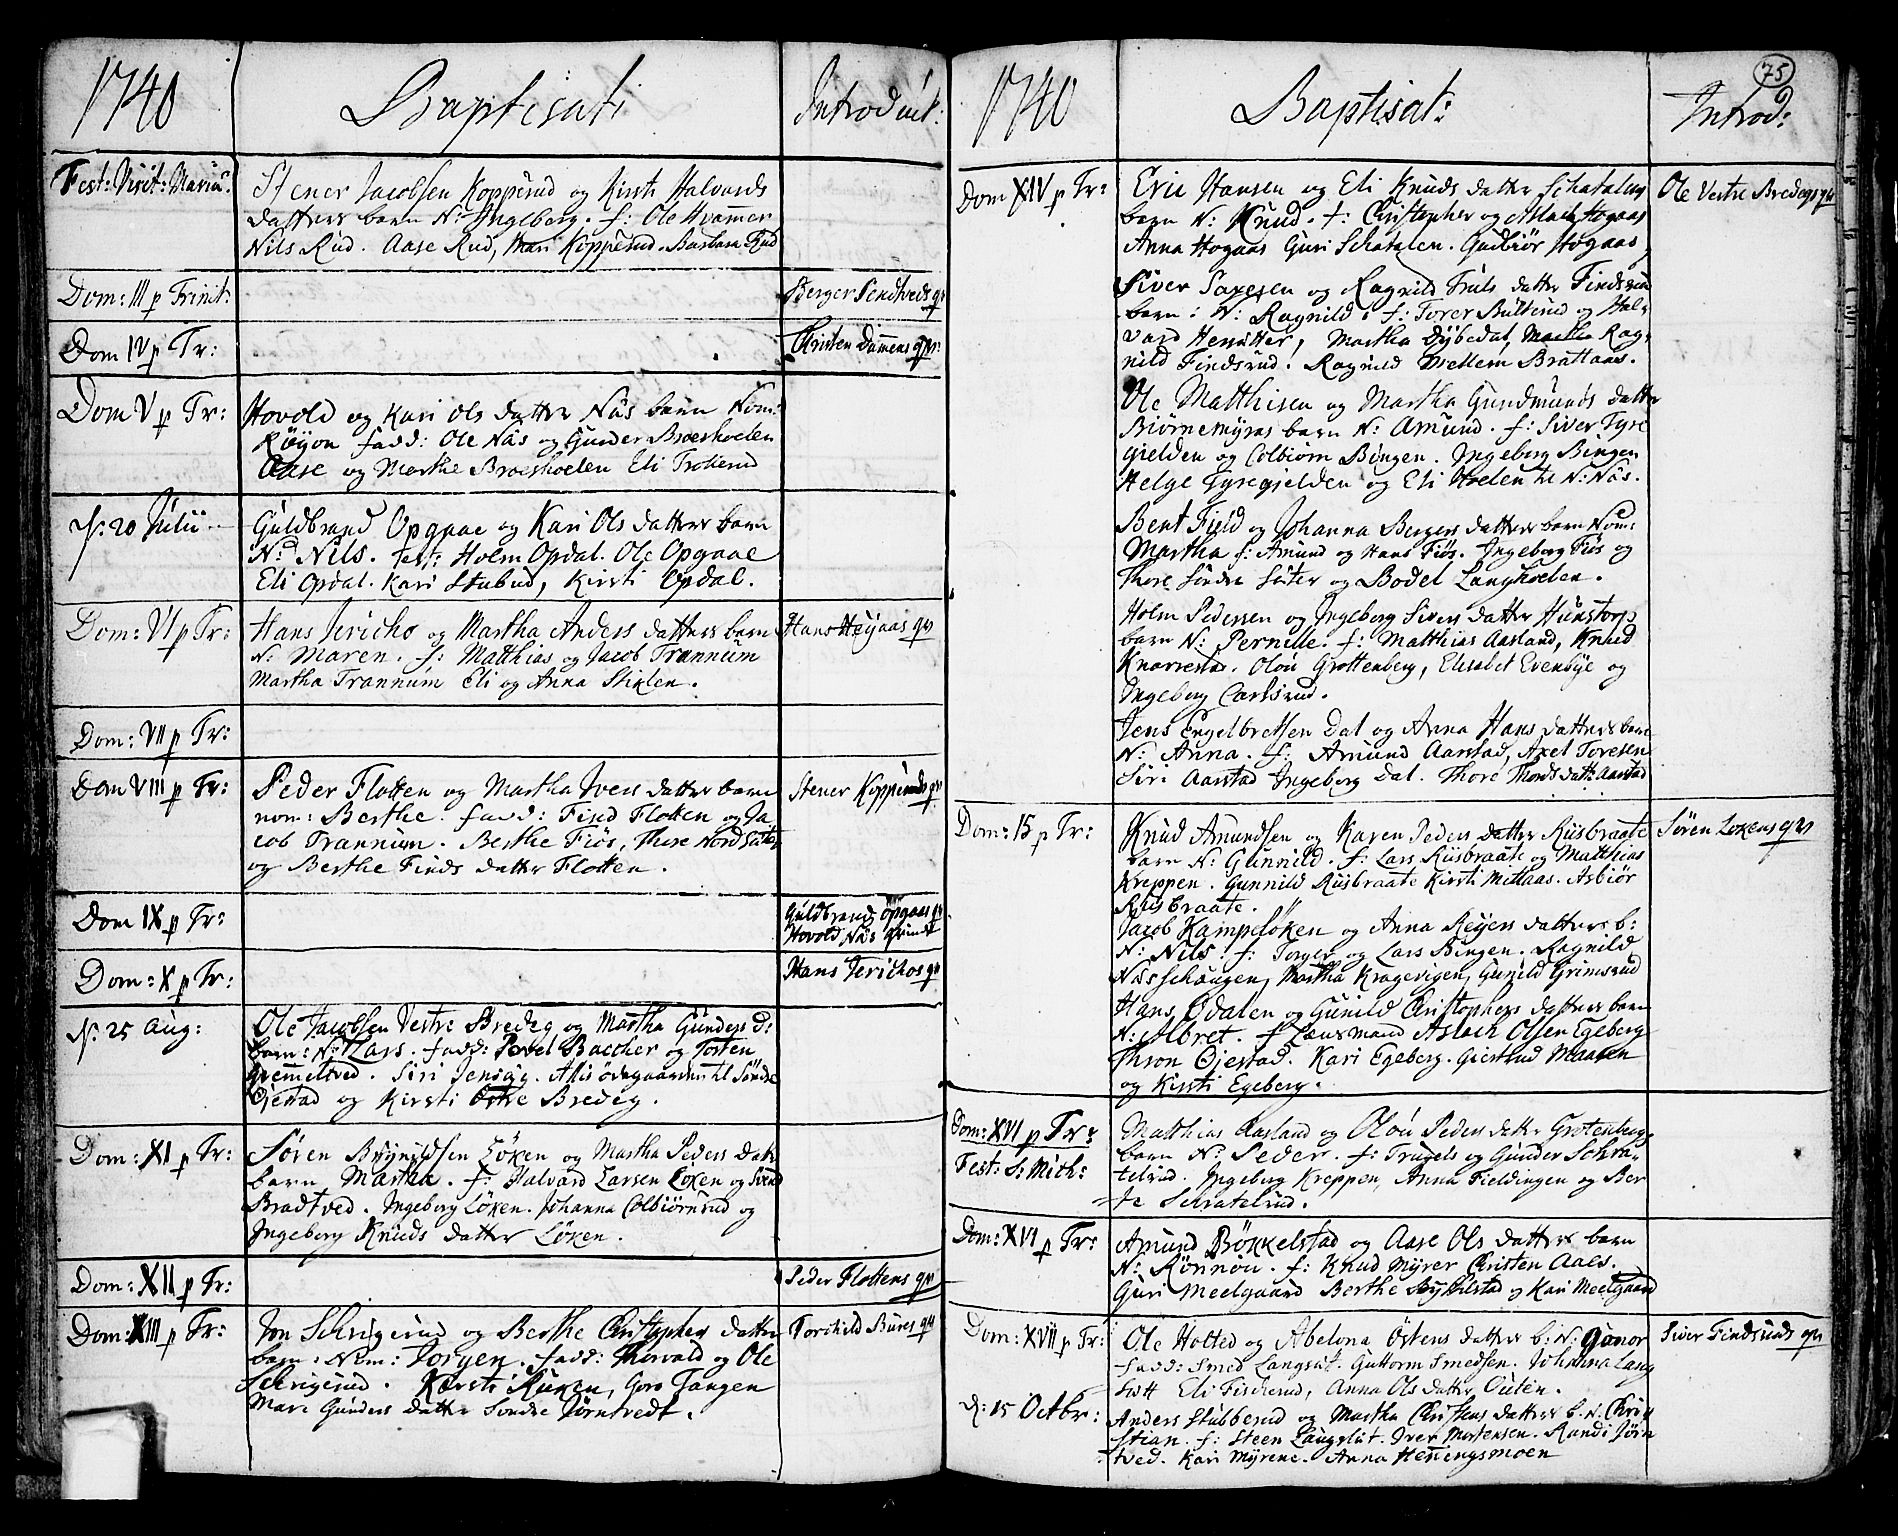 1740
Baptisati
Introduct:
Fest: Visit: Mariæ.
Stener Jacobsen Kopperud og Kirsti Halvords
datters barn N: Ingeborg. f: Ole Hvammer
Nils Rud. Aase Rud, Mari Kopperud. Barbara Rud
Dom: III p Trinit:
Berger Sendtveds qv
Dom IV p Tr:
Christen Dammens qv:
Dom V p Tr:
Hovold og Kari Ols datter Nås barn Nom:
Røyon fadd: Ole Nås og Gunder Broeshoelen
Aase og Marthe Broeshoelen Eli Trollerud
N: 20 Julii
Guldbrand Opgaae og Kari Ols datters barn
N: Nils. test: Holm Opdal. Ole Opgaae
Eli Opdal. Kari Stubud, Kirsti Opdal.
Dom: VI p Tr:
Hans Jericho og Martha Anders datters barn
N: Maren. f: Matthias og Jacob Trannum
Martha Trannum Eli og Anna Stiklen.
Hans Heyaas qv
Dom: VII p Tr:
Dom VIII p Tr:
Peder Flotten og Martha Ivers datters barn
nom: Berthe. fadd: Find Flotten og Ja
cob Trannum. Berthe Fiøs, Thore Nordsäter
og Berthe Finds datter Flotten.
Stener Kopperuds qv
Dom IX p Tr:
Guldbrand Opgaas qv
Hovold Nås qvinde
Dom: X p Tr:
Hans Jerichos qv
N: 25 Aug:
Ole Jacobsen Vestre Bredeg og Martha Gunders d:
barn: N: Lars. fadd: Povel Baccher og Tosten
Gremmeltved. Siri Jensegg. Allis Ödegaarden til Söndre
Ojestad og Kirsti Östre Bredeg.
Dom: XI p Tr:
Søren Brynildsen Löken og Martha Peders Datt:
barn Martha. f: Halvard Larsen Løken og Svend
Bradtved. Ingeborg Löken. Johanna Colbiörnrud og
Ingeborg Knuds datter Löken.
Dom: XII p Tr:
Peder Flottens qv
Dom: XIII p Tr:
Jon Schrigerud og Berthe Christophers datter
barn: Nom: Jorgen. fadd: Thorvald og Ole
Schrigerud. Kirsti Ruken, Goro Tangen
Mari Gunders datter Söndre Jörntvedt.
Torchild Bures qv
75
1740
Baptisat:
Introd:
Dom XIV p Tr:
Eric Hansen og Eli Knuds datter Schatalens
barn N: Knud. f: Christopher og Aslach Hogaas
Anna Hogaas Guri Schatalen. Gudbiör Hogaas
Ole Vestre Bredegs qv
Siver Saxesen og Ragnild Truls datter Findsrud
barn: N: Ragnild. f: Torer Bulterud og Hal-
vord Hensätter, Martha Dybedal, Martha Rag-
nild Findsrud. Ragnild Mellem Brattaas.
Ole Matthisen og Martha Gundmunds datter
Biørnemyras barn N: Amund. f: Siver Tyre
gjelden og Colbiørn Bingen. Ingeborg Bingen
Helge Tyregjelden og Eli Hoelen til N: Nås.
Bent Fjeld og Johanna Bergers datters barn Nom:
Martha f: Amund og Hans Fiös. Ingeborg Fiös og
Thore Söndre Säter og Bodel Langhoelen.
Holm Pedersen og Ingeborg Sivers datter Hunstorps
barn N: Pernille. f: Matthias Aasland, Knud
Knarrestad. Olou Grottenberg, Elisabet Evenbye og
Ingeborg Carlsrud.
Jens Engelbretsen Dal og Anna Hans datters barn
N: Anna. f: Amund Aarstad, Axel Toresen
Siri Aarstad Ingeborg Dal. Thore Thords datt: Aarstad
Dom: 15 p Tr:
Knud Amundsen og Karen Peders datter Riisbraate
barn N: Gunnild. f: Lars Riisbraate og Matthias
Kreppen. Gunnild Riisbraate Kirsti Mellaas. Asbiör
Riisbraate.
Søren Lökens qv
Jacob Kampeløken og Anna Reyers datters b:
N: Nils. f: Torger og Lars Bingen. Ragnild
Nässchaugen, Martha Kragevigen, Gunild Grimsrud
Hans Ødalen og Gunild Christophers datters barn
N: Albret. f Lensmand Aslach Olsen Egeberg
Thron Ojestad. Kari Egeberg. Giertrud Maasen
og Kirsti Egeberg.
Dom: XVI p Tr:
Fest: S: Mich:
Matthias Aasland og Olou Peders datter Grotenbergs
barn N: Peder. f: Trugels og Gunder Schra-
telrud. Ingeborg Kreppen, Anna Fieldingen og Ber
te Schratelrud.
Dom: XVI p Tr:
Amund Bökkelstad og Aase Ols datters barn
N: Rönnou. f: Knud Myrer Christen Aaes.
Guri Meelgaard Berthe Bykkilstad og Kari Meelgaard
Dom: XVII p Tr:
Ole Holted og Abelona Östens datter b: N: Gunor
fadd: Smed Langslet. Guttorm Smedsen. Johanna Lang
slett Eli Fischerud, Anna Ols datter Outen.
Siver Findsruds qv
d: 15 Octbr:
Anders Stubberud og Martha Christens datters b: N: Chri
stian. f: Steen Langslet. Iver Mortensen. Randi Jörn
tved. Kari Myrene. Anna Henningsmoen